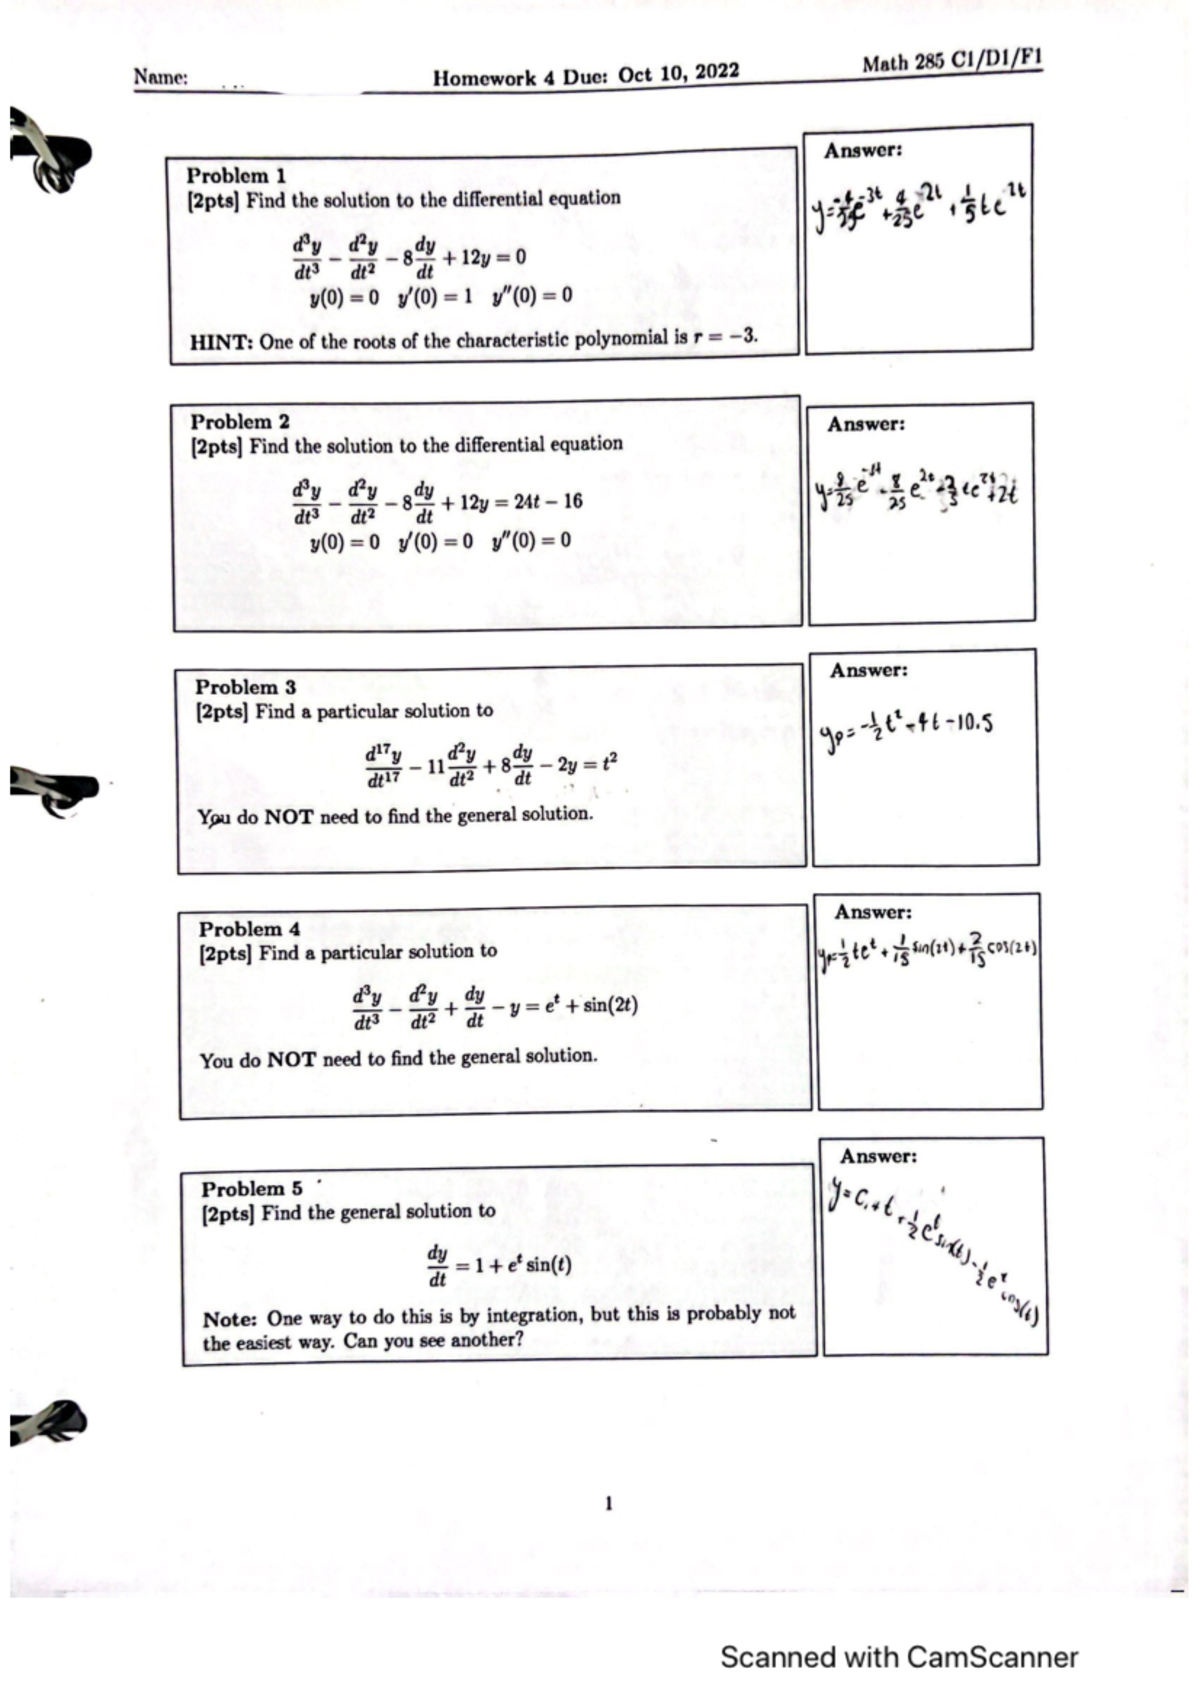 Name:
Homework 4 Due: Oct 10, 2022
Math 285 C1/D1/F1
Problem 1
[2pts] Find the solution to the differential equation
d³y/dt³ − d²y/dt² − 8 dy/dt + 12y = 0
y(0) = 0 y′(0) = 1 y″(0) = 0
HINT: One of the roots of the characteristic polynomial is r = −3.
Answer:
Problem 2
[2pts] Find the solution to the differential equation
d³y/dt³ − d²y/dt² − 8 dy/dt + 12y = 24t − 16
y(0) = 0 y′(0) = 0 y″(0) = 0
Answer:
Problem 3
[2pts] Find a particular solution to
d¹⁷y/dt¹⁷ − 11 d²y/dt² + 8 dy/dt − 2y = t²
You do NOT need to find the general solution.
Answer:
yp = -1/2 t² - 4t - 10.5
Problem 4
[2pts] Find a particular solution to
d³y/dt³ − d²y/dt² + dy/dt − y = eᵗ + sin(2t)
You do NOT need to find the general solution.
Answer:
yp = 1/2 teᵗ + 1/15 sin(2t) + 2/15 cos(2t)
Problem 5
[2pts] Find the general solution to
dy/dt = 1 + eᵗ sin(t)
Note: One way to do this is by integration, but this is probably not
the easiest way. Can you see another?
Answer:
y = C₁ + t + 1/2 eᵗ sin(t) - 1/2 eᵗ cos(t)
1
Scanned with CamScanner